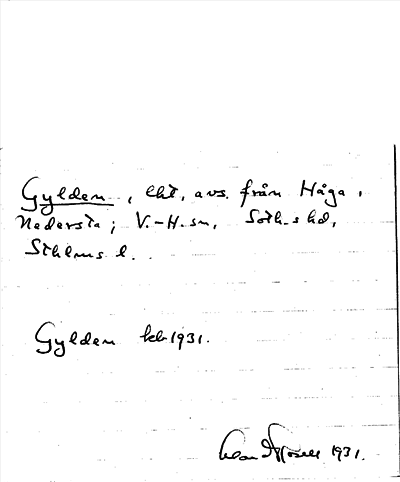 Gylden, lht, avs. från Håga,
Nedersta; V.-H. sn, Soth. hd,
Sthlms l.
Gylden kb 1931.
1931.